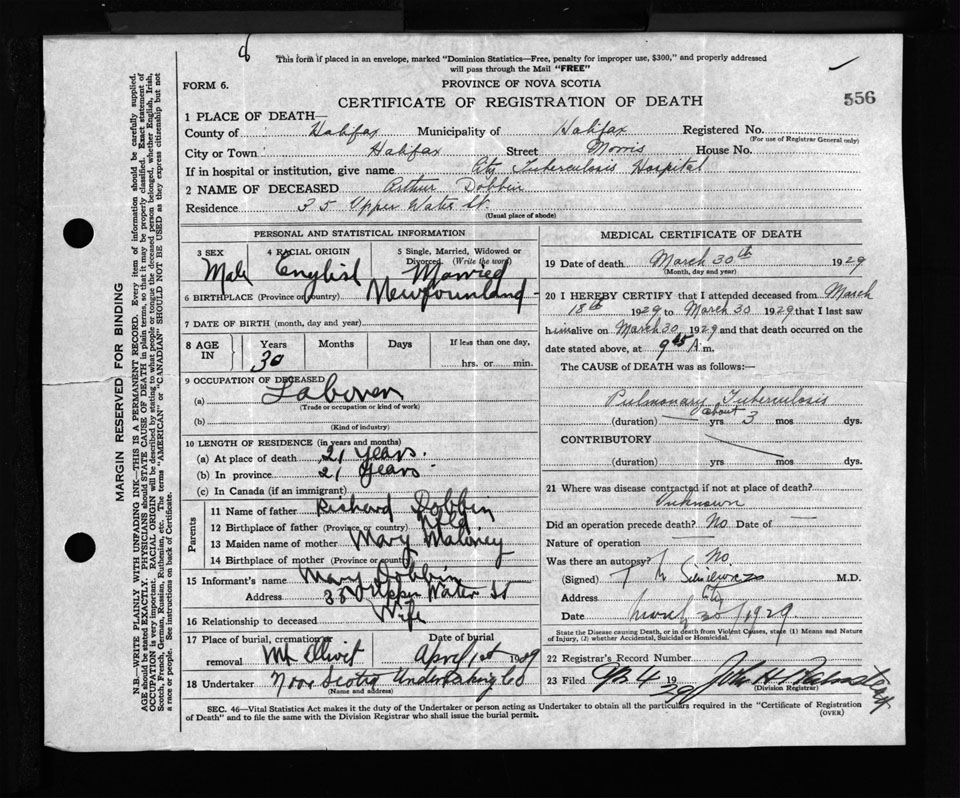 This form if placed in an envelope, marked "Dominion Statistics—Free, penalty for improper use, $300," and properly addressed
will pass through the Mail "FREE"
FORM 6.
PROVINCE OF NOVA SCOTIA
CERTIFICATE OF REGISTRATION OF DEATH
556
1 PLACE OF DEATH—
County of Halifax Municipality of Halifax Registered No.
(For use of Registrar General only)
City or Town Halifax Street Morris House No.
If in hospital or institution, give name City Tuberculosis Hospital
2 NAME OF DECEASED Arthur Dobbin
Residence 35 Upper Water St.
(Usual place of abode)
PERSONAL AND STATISTICAL INFORMATION
3 SEX 4 RACIAL ORIGIN 5 Single, Married, Widowed or
Divorced (Write the word)
Male English Married
6 BIRTHPLACE (Province or country) Newfounland
7 DATE OF BIRTH (month, day and year)
8 AGE IN Years Months Days If less than one day,
30 hrs. or min.
9 OCCUPATION OF DECEASED
(a) Laborer
(Trade or occupation or kind of work)
(b)
(Kind of industry)
10 LENGTH OF RESIDENCE (in years and months)
(a) At place of death 21 years.
(b) In province 21 years
(c) In Canada (if an immigrant)
Parents
11 Name of father Richard Dobbin
12 Birthplace of father (Province or country) Nfld
13 Maiden name of mother Mary Maloney
14 Birthplace of mother (Province or country)
15 Informant's name Mary Dobbin
Address Upper Water St
16 Relationship to deceased Wife
17 Place of burial, cremation or Date of burial
removal Mt Olivet April 1st 1929
18 Undertaker Nova Scotia Undertaking Co
(Name and address)
MEDICAL CERTIFICATE OF DEATH
19 Date of death March 30th 1929
(Month, day and year)
20 I HEREBY CERTIFY that I attended deceased from March
18th 1929 to March 30 1929 that I last saw
him alive on March 30, 1929 and that death occurred on the
date stated above, at 9 45 A m.
The CAUSE of DEATH was as follows:—
Pulmonary Tuberculosis
about
(duration) yrs 3 mos dys.
CONTRIBUTORY
(duration) yrs mos dys.
21 Where was disease contracted if not at place of death?
Unknown
Did an operation precede death? No Date of —
Nature of operation —
Was there an autopsy? No
(Signed) M.D.
Address City
Date March 30/1929
State the Disease causing Death, or in death from Violent Causes, state (1) Means and Nature
of Injury, (2) whether Accidental, Suicidal or Homicidal.
22 Registrar's Record Number
23 Filed 4 1929 John H.
(Division Registrar)
SEC. 46—Vital Statistics Act makes it the duty of the Undertaker or person acting as Undertaker to obtain all the particulars required in the "Certificate of Registration
of Death" and to file the same with the Division Registrar who shall issue the burial permit.
(OVER)
MARGIN RESERVED FOR BINDING
N.B.—WRITE PLAINLY WITH UNFADING INK—THIS IS A PERMANENT RECORD. Every item of information should be carefully supplied.
AGE should be stated EXACTLY. PHYSICIANS should STATE CAUSE OF DEATH in plain terms, so that it may be properly classified. Exact statement of
OCCUPATION is very important. RACIAL ORIGIN will be described by stating to what people or tongue the deceased person belonged, whether English, Irish,
Scotch, French, German, Russian, Ruthenian, etc. The terms "AMERICAN" or "CANADIAN" SHOULD NOT BE USED as they express citizenship but not
a race or people. See instructions on back of Certificate.